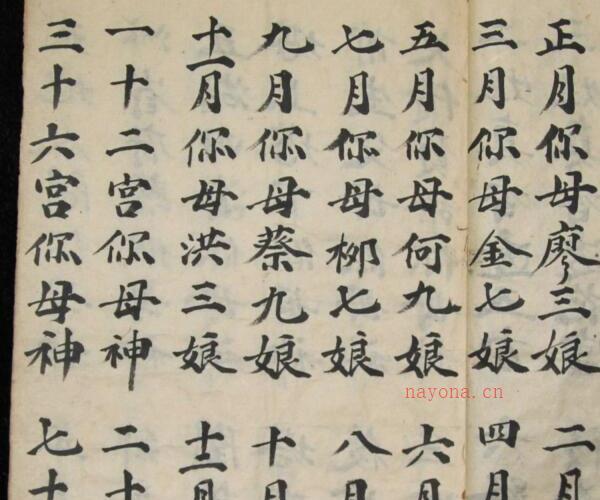 正月你母廖三娘 二月
三月你母金七娘 四月
五月你母何九娘 六月
七月你母柳七娘 八月
九月你母蔡九娘 十月
十一月你母洪三娘 十二月
一十二宫你母神 二十
三十六宫你母神 七十
nayona.cn